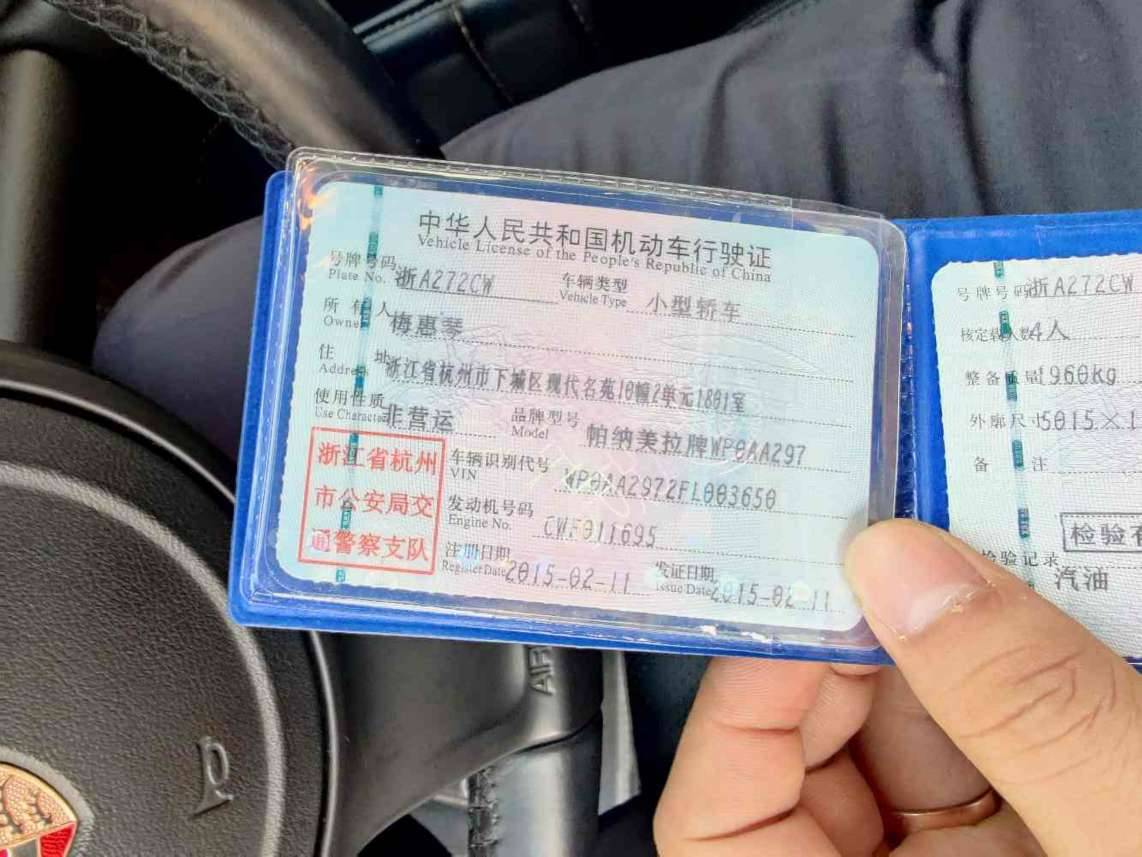 中华人民共和国机动车行驶证
Vehicle License of the People's Republic of China
号牌号码 浙A272CW 车辆类型 小型轿车
Plate No. Vehicle Type
所有人 梅惠琴
Owner
住址 浙江省杭州市下城区现代名苑10幢2单元1801室
Address
使用性质 非营运 品牌型号 帕纳美拉牌WP0AA297
Use Character Model
浙江省杭州
市公安局交
通警察支队
车辆识别代号 WP0AA2972FL003650
VIN
发动机号码 CWF011695
Engine No.
注册日期 2015-02-11 发证日期 2015-02-11
Register Date Issue Date
号牌号码 浙A272CW
核定载人数 4人
整备质量 1960kg
外廓尺寸 5015×1
备注
检验有
检验记录
汽油
AIR
P